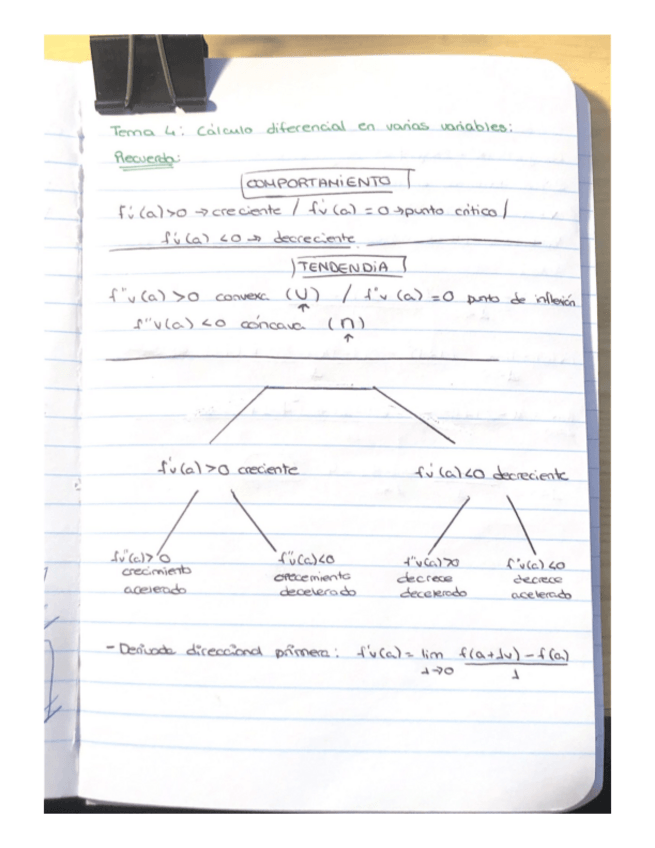 Tema 4: Cálculo diferencial en varias variables:
Recuerda:
COMPORTAMIENTO
f'v(a)>0 → creciente / f'v(a) = 0 → punto crítico /
f'v(a) <0 → decreciente
TENDENDIA
f''v(a) >0 convexa (U) / f''v(a) =0 punto de inflexión
f''v(a) <0 cóncava (∩)
f'v(a)>0 creciente
f'v(a)<0 decreciente
f''v(a)>0 crecimiento acelerado
f''v(a)<0 crecemiento decelerado
f''v(a)>0 decrece decelerado
f''v(a) <0 decrece acelerado
- Derivada direccional primera: f'v(a) = lim f(a+λv) - f(a)
λ→0 λ